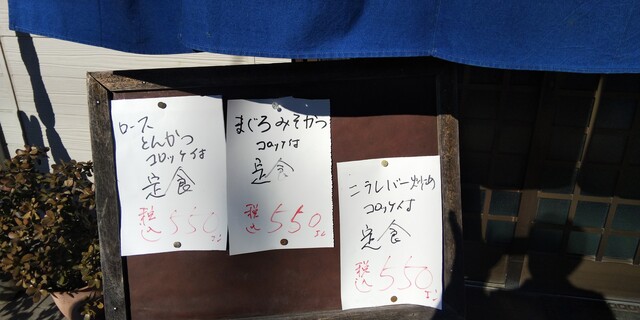 ロース
とんかつ
コロッケ付
定食
税込550円
まぐろみそかつ
コロッケ付
定食
税込550円
ニラレバー炒め
コロッケ付
定食
税込550円